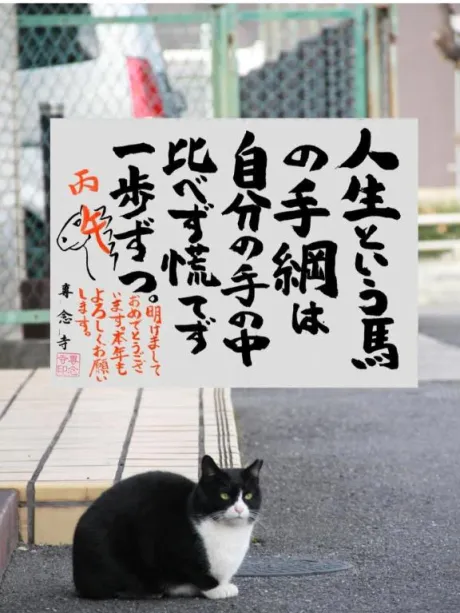 人生という馬
の手綱は
自分の手の中
比べず慌てず
一歩ずつ。
明けまして
おめでとうござ
います。本年も
よろしくお願い
します。
丙午
専念寺
専念寺印